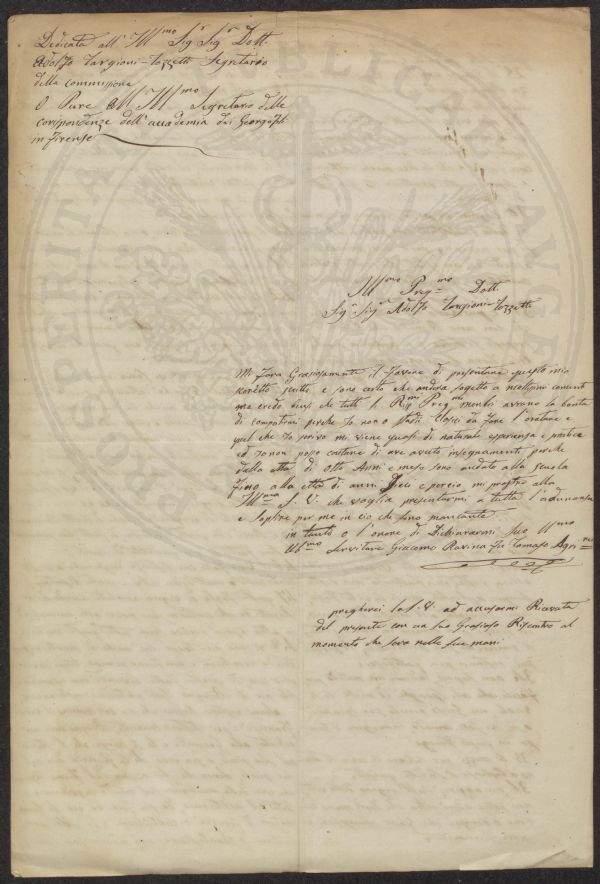 Dedicata all' Ill.mo Sig.r Sig.r Dott.
Adolfo Targioni-Tozzetti Segretario
della commissione
O Pure all Ill.mo Segretario delle
corispondenze dell'accademia dei Georgofili
in Firense
Ill.mo Preg.mo Dott.
Sig.r Sig.r Adolfo Targioni Tozzetti
Mi Fara Graziosamente il Favore di presentare questo mio
scritto e sono certo che andera sogetto a moltissimi comenti
ma credo bensi che tutti li Preg.mi membri avrano la bonta
di compatirmi perche Io non o studi Clasici da fare l'oratore e
quel che Io scrivo mi viene quasi di naturale esperiensa e pratica
ed Io non posso contare di avere avuto insegnamenti perche
dalla etta di otto Anni e meso sono andato alla scuola
Fino alla etta di anni Dieci e percio mi prostro alla
Ill.ma S. V. che voglia presentarmi a tutta l'adunansa
e Suplire per me in cio che sono mancante
in tanto o l'onore di Dichiararmi Suo U.mo
Ub.mo Servitore Giacomo Ravina fu Tomaso
pregherei la S. V. ad accusarmi Ricevuta
del presente con un suo Grasioso Riscontro al
momento che sara nelle sue mani
PROSPERITA
PUBLICAE
AUGENDAE